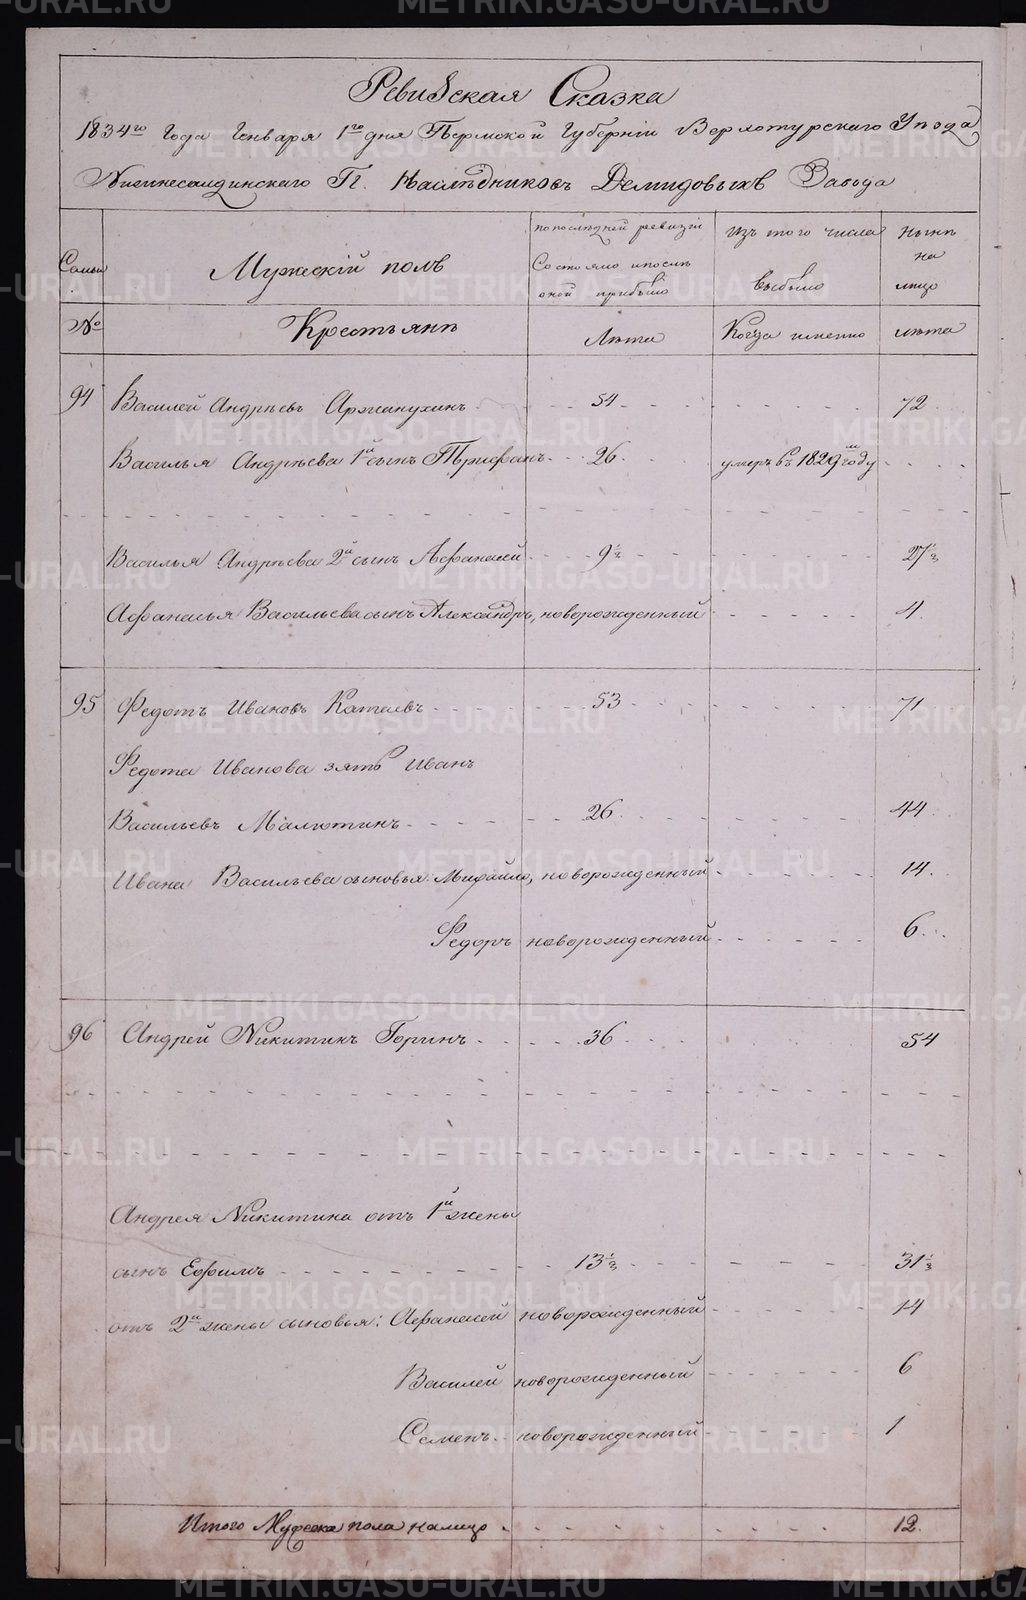 Ревизская Сказка
1834го Года Генваря 1го дня Пермской Губернии Верхотурскаго Уезда
Нижнесалдинскаго Гг. Наследниковъ Демидовыхъ Завода
Семьи
Мужескій полъ
по последней ревизіи
Состояло и после
оной прибыло
Изъ того числа
выбыло
Ныне
на
лицо
№
Крестьяне
Лета
Когда именно
лета
94 Василей Андреевъ Аржанухинъ 54 72
Василья Андреева 1й сынъ Трифанъ 26 умеръ въ 1829м году
Василья Андреева 2й сынъ Афанасей 9½ 27½
Афанасья Васильева сынъ Александръ, новорожденный 4
95 Федотъ Ивановъ Кателевъ 53 71
Федота Иванова зять Иванъ
Васильевъ Малютинъ 26 44
Ивана Васильева сыновья: Михайло, новорожденный 14
Федоръ новорожденный 6
96 Андрей Никитинъ Горинъ 36 54
Андрея Никитина отъ 1й жены
сынъ Ефимъ 13½ 31½
отъ 2й жены сыновья: Афанасей новорожденный 14
Василей новорожденный 6
Семенъ новорожденный 1
Итого Мужеска пола налицо 12.
METRIKI.GASO-URAL.RU